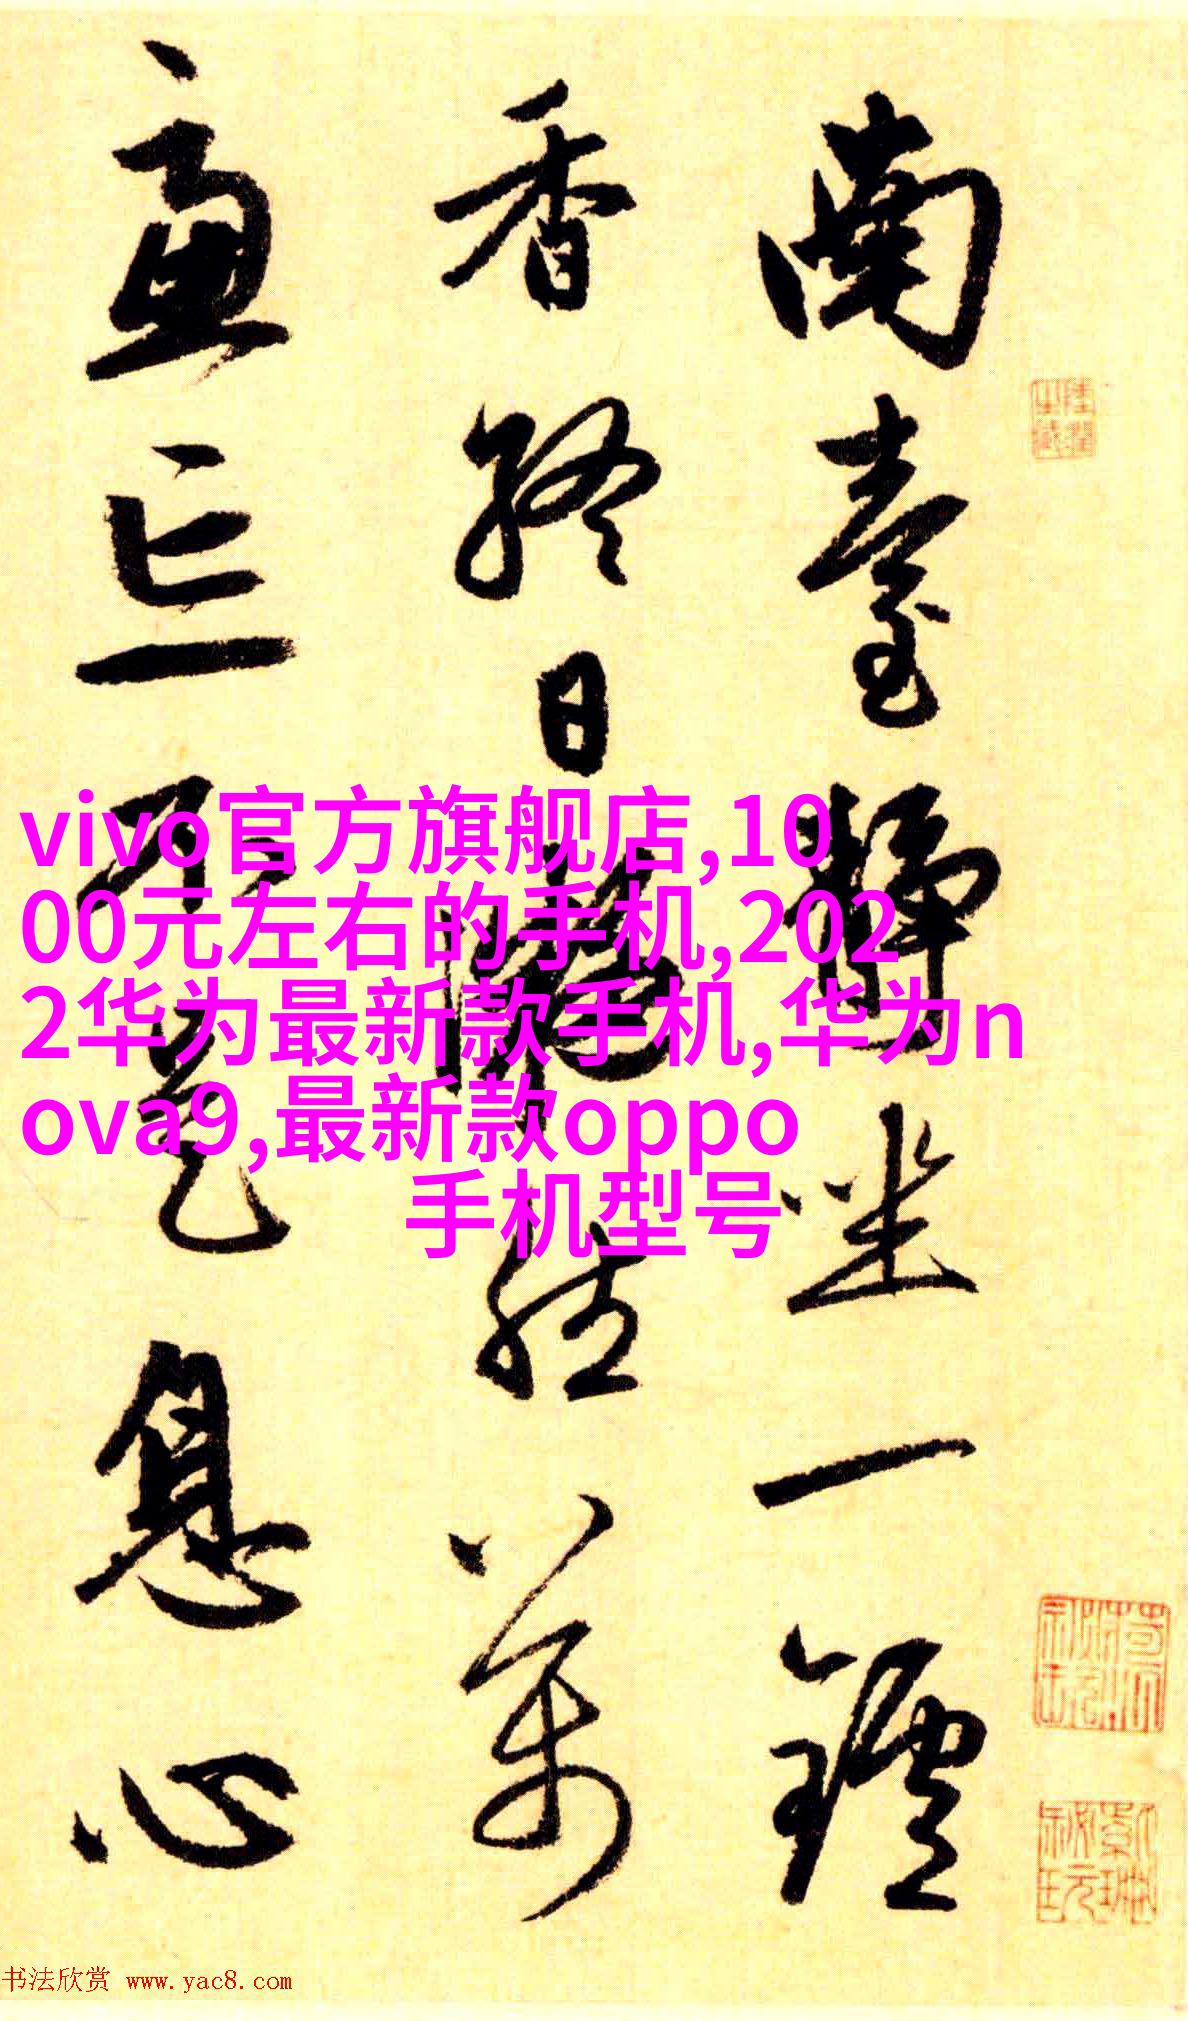 南臺靜坐一鑪
香終日凝然萬
慮忘不是息心
vivo官方旗舰店,10
00元左右的手机,202
2华为最新款手机,华为n
ova9,最新款oppo
手机型号
书法欣赏 www.yac8.com